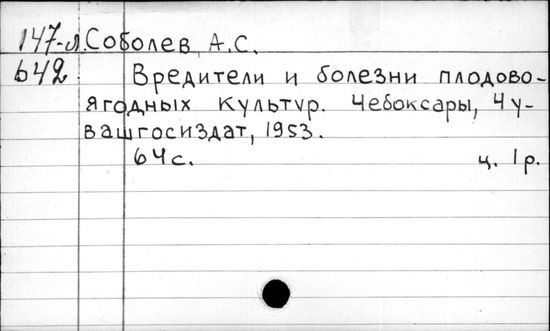 147-л. Соболев, А.С.
642. Вредители и болезни плодово-
ягодных культур. Чебоксары, Чу-
вашгосиздат, 1953.
64с. ц. 1р.